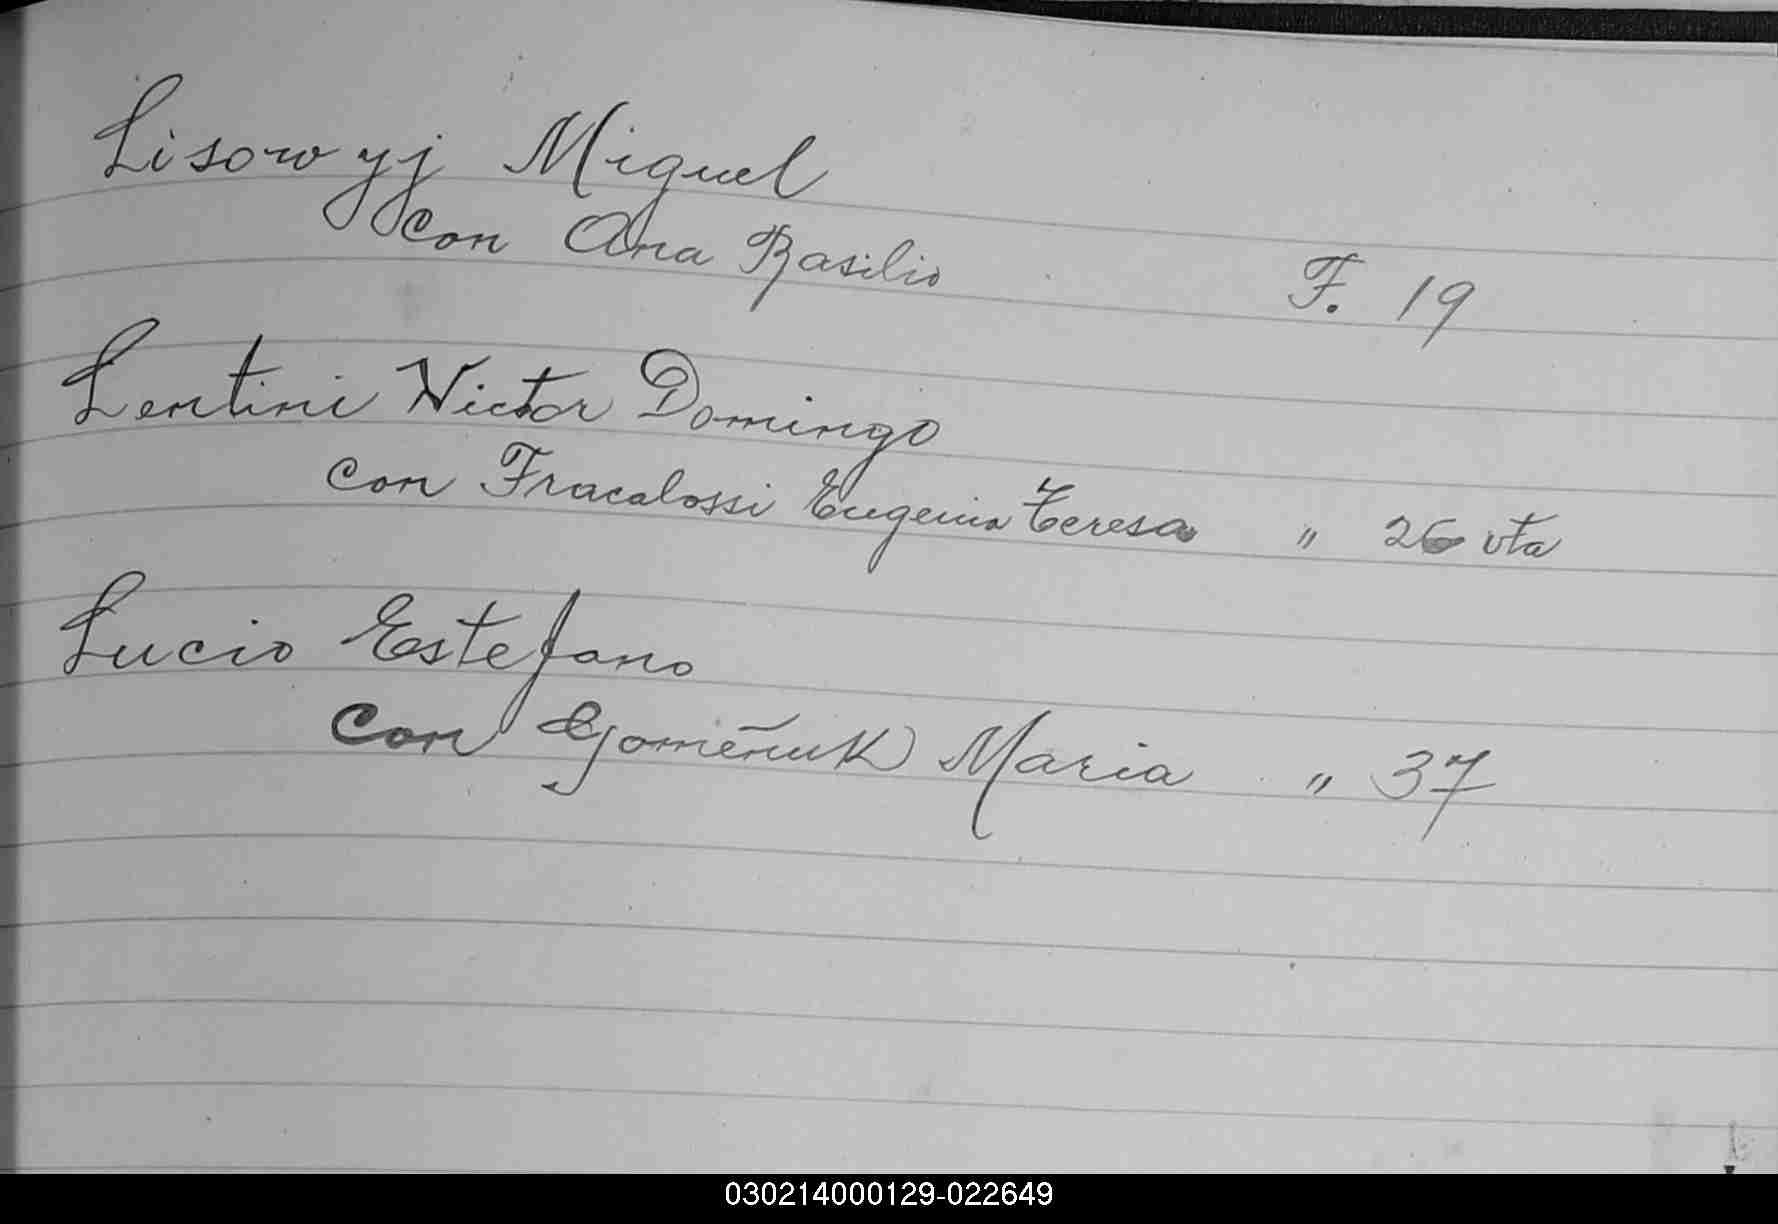 Lisowyj Miguel
con Ana Basilio F. 19
Lentini Victor Domingo
con Fracalossi Eugenia Teresa " 26 vta
Lucio Estefano
Con Gomeñuk Maria " 37
030214000129-022649